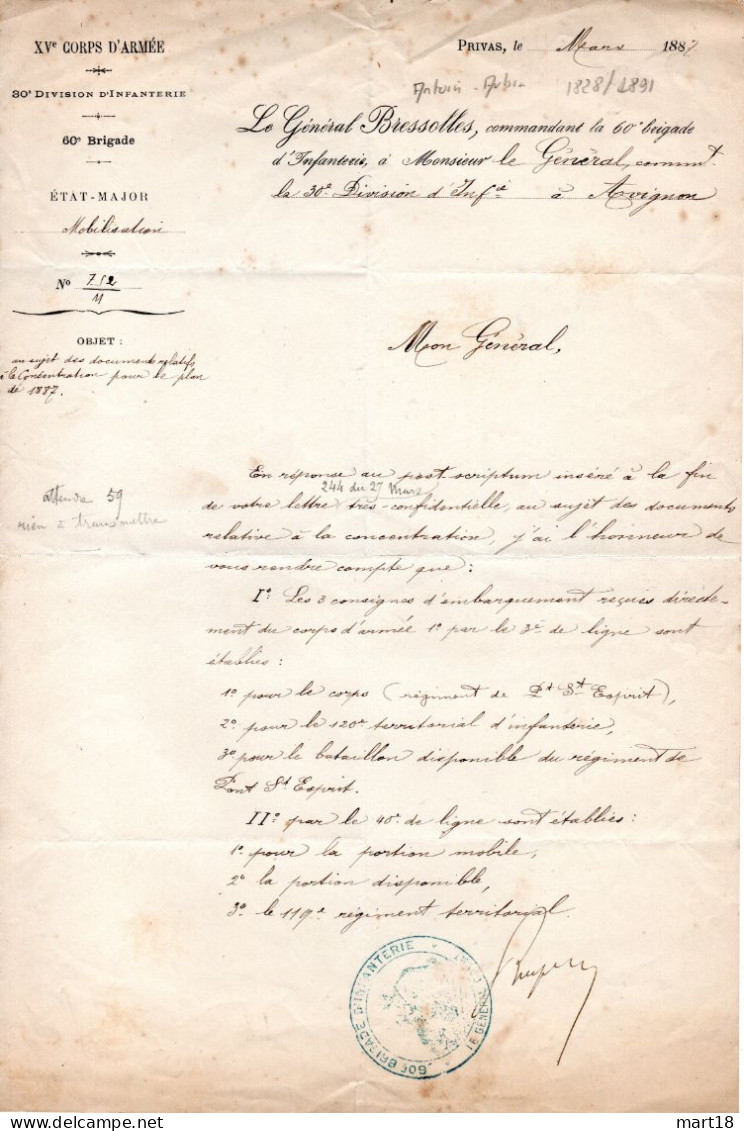 XVe CORPS D'ARMÉE
30e DIVISION D'INFANTERIE
60e Brigade
ÉTAT-MAJOR
Mobilisation
No 752
11
OBJET :
au sujet des documents relatifs
à la Concentration pour le plan
de 1887.
attendre 59
rien à transmettre
PRIVAS, le Mars 1887
1828/1891
Le Général Bressolles, commandant la 60e brigade
d'Infanterie, à Monsieur le Général, commt
la 30e Division d'Infie à Avignon
Mon Général,
En réponse au post scriptum inséré à la fin
244 du 27 Mars
de votre lettre très-confidentielle, au sujet des documents
relative à la concentration, j'ai l'honneur de
vous rendre compte que :
I° Les 3 consignes d'embarquement reçues directe-
ment du corps d'armée 1° par le 3e de ligne sont
établies :
1° pour le corps (régiment de Pt St Esprit),
2° pour le 120e territorial d'infanterie,
3° pour le bataillon disponible du régiment de
Pont St Esprit.
II° par le 40e de ligne sont établies :
1° pour la portion mobile,
2° la portion disponible,
3° le 119e régiment territorial.
60e BRIGADE D'INFANTERIE
LE GÉNÉRAL
mart18